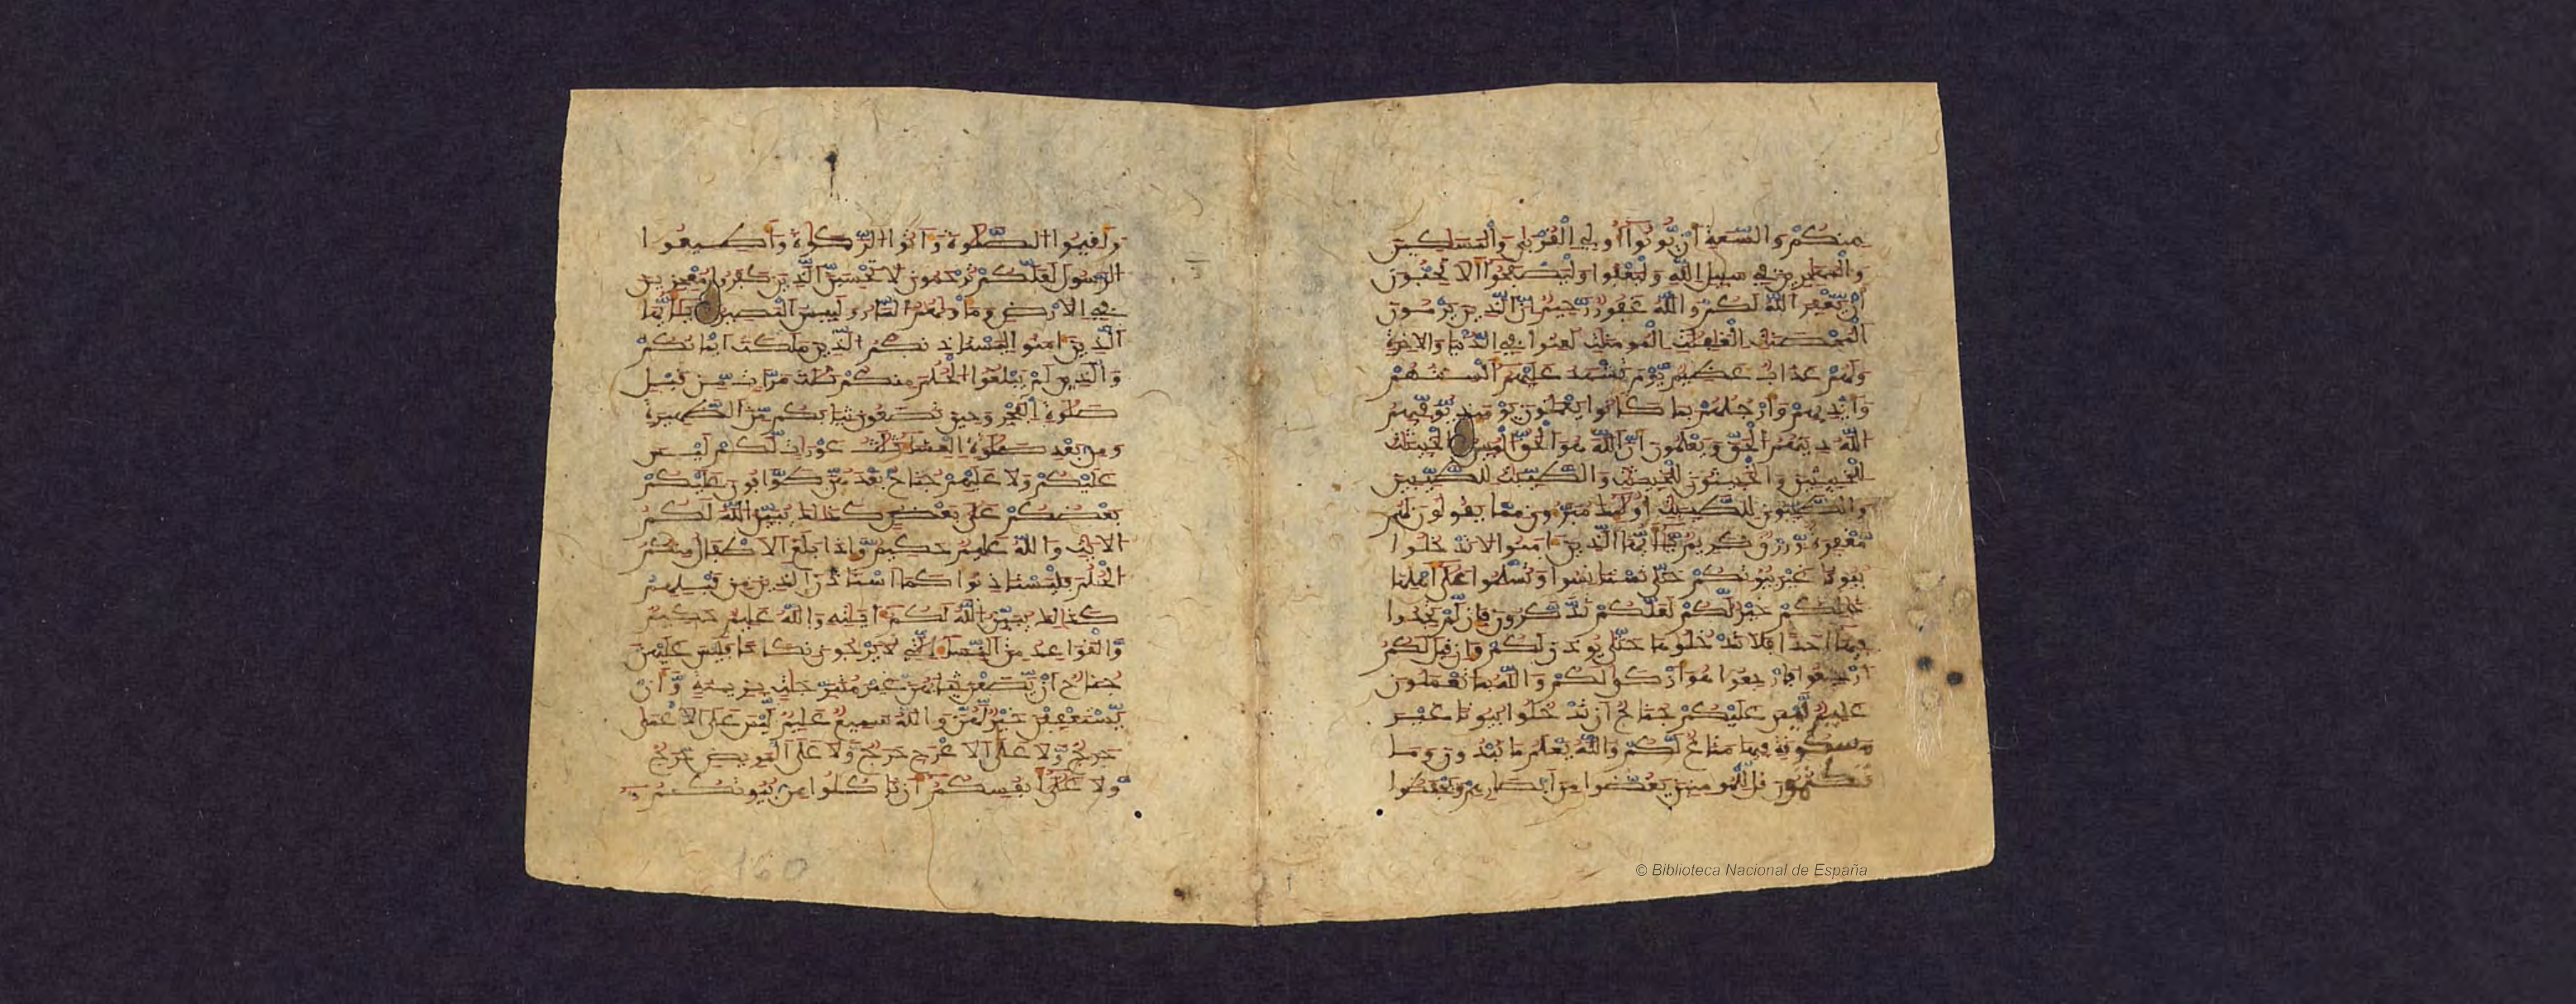 منكُمْ وَالسَّعَةِ أَنْ يُّوتُوا أُولِي الْقُرْبَىٰ وَالْمَسَٰكِينَ
وَالْمُهَٰجِرِينَ فِي سَبِيلِ اللَّهِ وَلْيَعْفُوا وَلْيَصْفَحُوا أَلَا تُحِبُّونَ
أَنْ يَّغْفِرَ اللَّهُ لَكُمْ وَاللَّهُ غَفُورٌ رَّحِيمٌ إِنَّ الَّذِينَ يَرْمُونَ
الْمُحْصَنَٰتِ الْغَٰفِلَٰتِ الْمُومِنَٰتِ لُعِنُوا فِي الدُّنْيَا وَالَاخِرَةِ
وَلَهُمْ عَذَابٌ عَظِيمٌ يَّوْمَ تَشْهَدُ عَلَيْهِمُ أَلْسِنَتُهُمْ
وَأَيْدِيهِمْ وَأَرْجُلُهُمْ بِمَا كَانُوا يَعْمَلُونَ يَوْمَئِذٍ يُّوَفِّيهِمُ
اللَّهُ دِينَهُمُ الْحَقَّ وَيَعْلَمُونَ أَنَّ اللَّهَ هُوَ الْحَقُّ الْمُبِينُ الْخَبِيثَٰتُ
لِلْخَبِيثِينَ وَالْخَبِيثُونَ لِلْخَبِيثَٰتِ وَالطَّيِّبَٰتُ لِلطَّيِّبِينَ
وَالطَّيِّبُونَ لِلطَّيِّبَٰتِ أُولَٰئِكَ مُبَرَّءُونَ مِمَّا يَقُولُونَ لَهُمْ
مَّغْفِرَةٌ وَّرِزْقٌ كَرِيمٌ يَٰأَيُّهَا الَّذِينَ ءَامَنُوا لَا تَدْخُلُوا
بُيُوتًا غَيْرَ بُيُوتِكُمْ حَتَّىٰ تَسْتَانِسُوا وَتُسَلِّمُوا عَلَىٰ أَهْلِهَا
ذَٰلِكُمْ خَيْرٌ لَّكُمْ لَعَلَّكُمْ تَذَّكَّرُونَ فَإِن لَّمْ تَجِدُوا
فِيهَا أَحَدًا فَلَا تَدْخُلُوهَا حَتَّىٰ يُوذَنَ لَكُمْ وَإِن قِيلَ لَكُمُ
ارْجِعُوا فَارْجِعُوا هُوَ أَزْكَىٰ لَكُمْ وَاللَّهُ بِمَا تَعْمَلُونَ
عَلِيمٌ لَّيْسَ عَلَيْكُمْ جُنَاحٌ أَن تَدْخُلُوا بُيُوتًا غَيْرَ
مَسْكُونَةٍ فِيهَا مَتَٰعٌ لَّكُمْ وَاللَّهُ يَعْلَمُ مَا تُبْدُونَ وَمَا
تَكْتُمُونَ قُل لِّلْمُومِنِينَ يَغُضُّوا مِنَ أَبْصَٰرِهِمْ وَيَحْفَظُوا
وَأَقِيمُوا الصَّلَوٰةَ وَءَاتُوا الزَّكَوٰةَ وَأَطِيعُوا
الرَّسُولَ لَعَلَّكُمْ تُرْحَمُونَ لَا تَحْسِبَنَّ الَّذِينَ كَفَرُوا مُعْجِزِينَ
فِي الَارْضِ وَمَأْوَىٰهُمُ النَّارُ وَلَبِيسَ الْمَصِيرُ يَٰأَيُّهَا
الَّذِينَ ءَامَنُوا لِيَسْتَاذِنكُمُ الَّذِينَ مَلَكَتَ ايْمَٰنُكُمْ
وَالَّذِينَ لَمْ يَبْلُغُوا الْحُلُمَ مِنكُمْ ثَلَٰثَ مَرَّٰتٍ مِّن قَبْلِ
صَلَوٰةِ الْفَجْرِ وَحِينَ تَضَعُونَ ثِيَابَكُم مِّنَ الظَّهِيرَةِ
وَمِن بَعْدِ صَلَوٰةِ الْعِشَاءِ ثَلَٰثُ عَوْرَٰتٍ لَّكُمْ لَيْسَ
عَلَيْكُمْ وَلَا عَلَيْهِمْ جُنَاحٌ بَعْدَهُنَّ طَوَّٰفُونَ عَلَيْكُمْ
بَعْضُكُمْ عَلَىٰ بَعْضٍ كَذَٰلِكَ يُبَيِّنُ اللَّهُ لَكُمُ
الَايَٰتِ وَاللَّهُ عَلِيمٌ حَكِيمٌ وَّإِذَا بَلَغَ الَاطْفَٰلُ مِنكُمُ
الْحُلُمَ فَلْيَسْتَاذِنُوا كَمَا اسْتَاذَنَ الَّذِينَ مِن قَبْلِهِمْ
كَذَٰلِكَ يُبَيِّنُ اللَّهُ لَكُمُ ءَايَٰتِهِ وَاللَّهُ عَلِيمٌ حَكِيمٌ
وَّالْقَوَٰعِدُ مِنَ النِّسَاءِ الَّٰتِي لَا يَرْجُونَ نِكَاحًا فَلَيْسَ عَلَيْهِنَّ
جُنَاحٌ أَنْ يَّضَعْنَ ثِيَابَهُنَّ غَيْرَ مُتَبَرِّجَٰتٍ بِزِينَةٍ وَّأَنْ
يَّسْتَعْفِفْنَ خَيْرٌ لَّهُنَّ وَاللَّهُ سَمِيعٌ عَلِيمٌ لَّيْسَ عَلَى الَاعْمَىٰ
حَرَجٌ وَّلَا عَلَى الَاعْرَجِ حَرَجٌ وَّلَا عَلَى الْمَرِيضِ حَرَجٌ
وَّلَا عَلَىٰ أَنفُسِكُمُ أَن تَاكُلُوا مِن بُيُوتِكُمُ
160
© Biblioteca Nacional de España